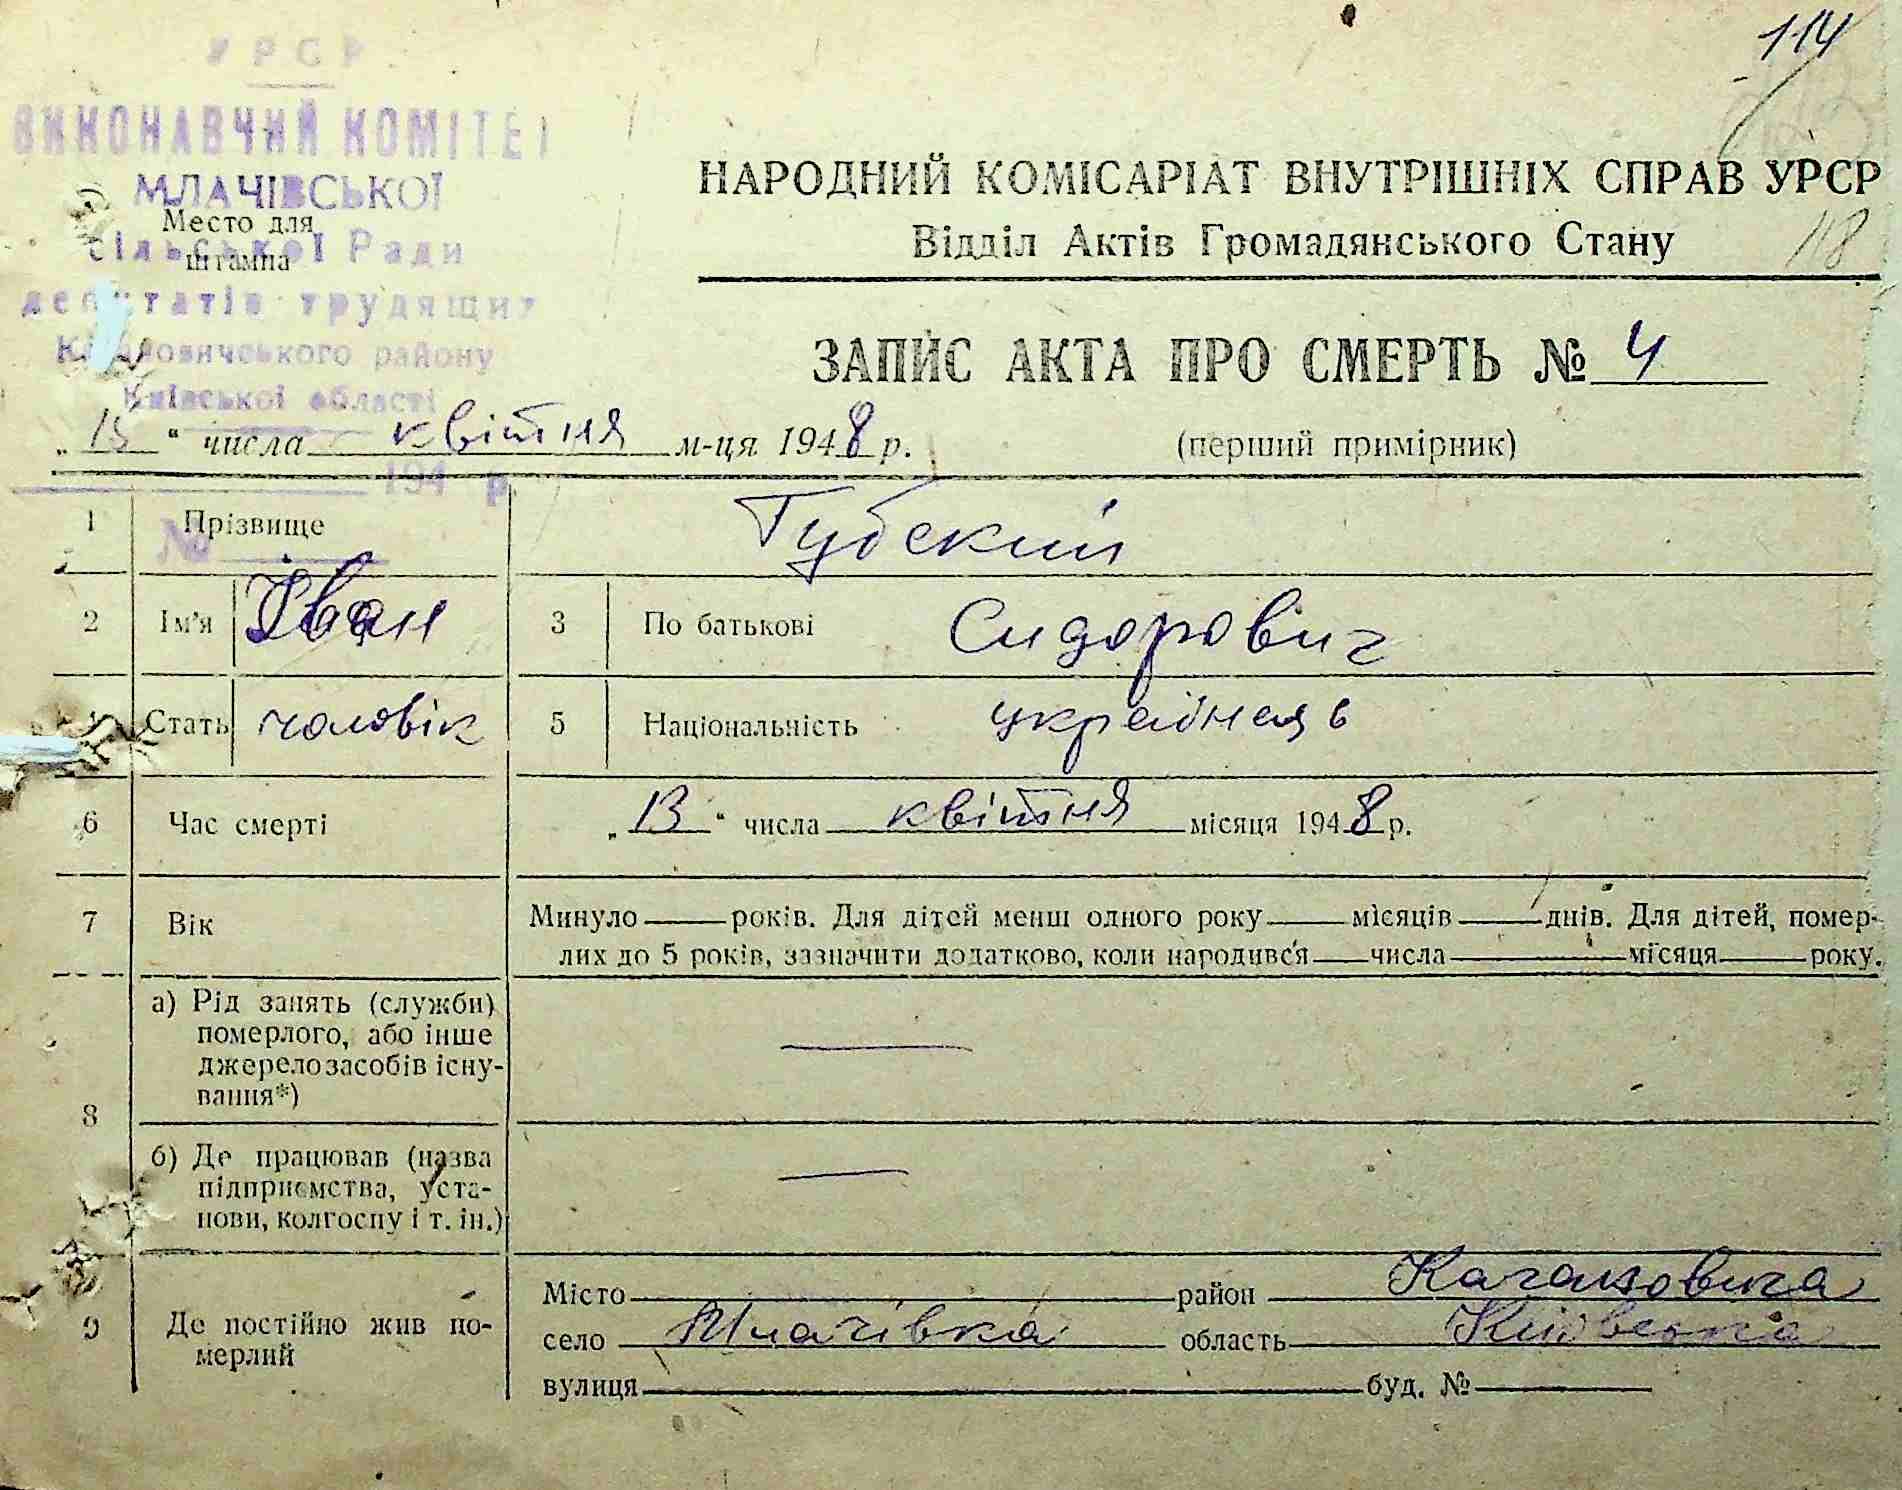 114
УРСР
ВИКОНАВЧИЙ КОМІТЕТ
МЛАЧІВСЬКОЇ
сільської Ради
депутатів трудящих
Кагановичського району
Київської області
194 р
№
Место для
штампа
НАРОДНИЙ КОМІСАРІАТ ВНУТРІШНІХ СПРАВ УРСР
Відділ Актів Громадянського Стану
118
ЗАПИС АКТА ПРО СМЕРТЬ № 4
„ 13 “ числа квітня м-ця 1948 р.
(перший примірник)
1 Прізвище Губский
2 Ім’я Іван 3 По батькові Сидорович
4 Стать чоловік 5 Національність українець
6 Час смерті „ 13 “ числа квітня місяця 1948 р.
7 Вік Минуло — років. Для дітей менш одного року — місяців — днів. Для дітей, помер-
лих до 5 років, зазначити додатково, коли народився — числа — місяця — року.
8 а) Рід занять (служби)
померлого, або інше
джерело засобів існу-
вання*) —
б) Де працював (назва
підприємства, уста-
нови, колгоспу і т. ін.) —
9 Де постійно жив по-
мерлий
Місто район Кагановича
село Млачівка область Київська
вулиця буд. №